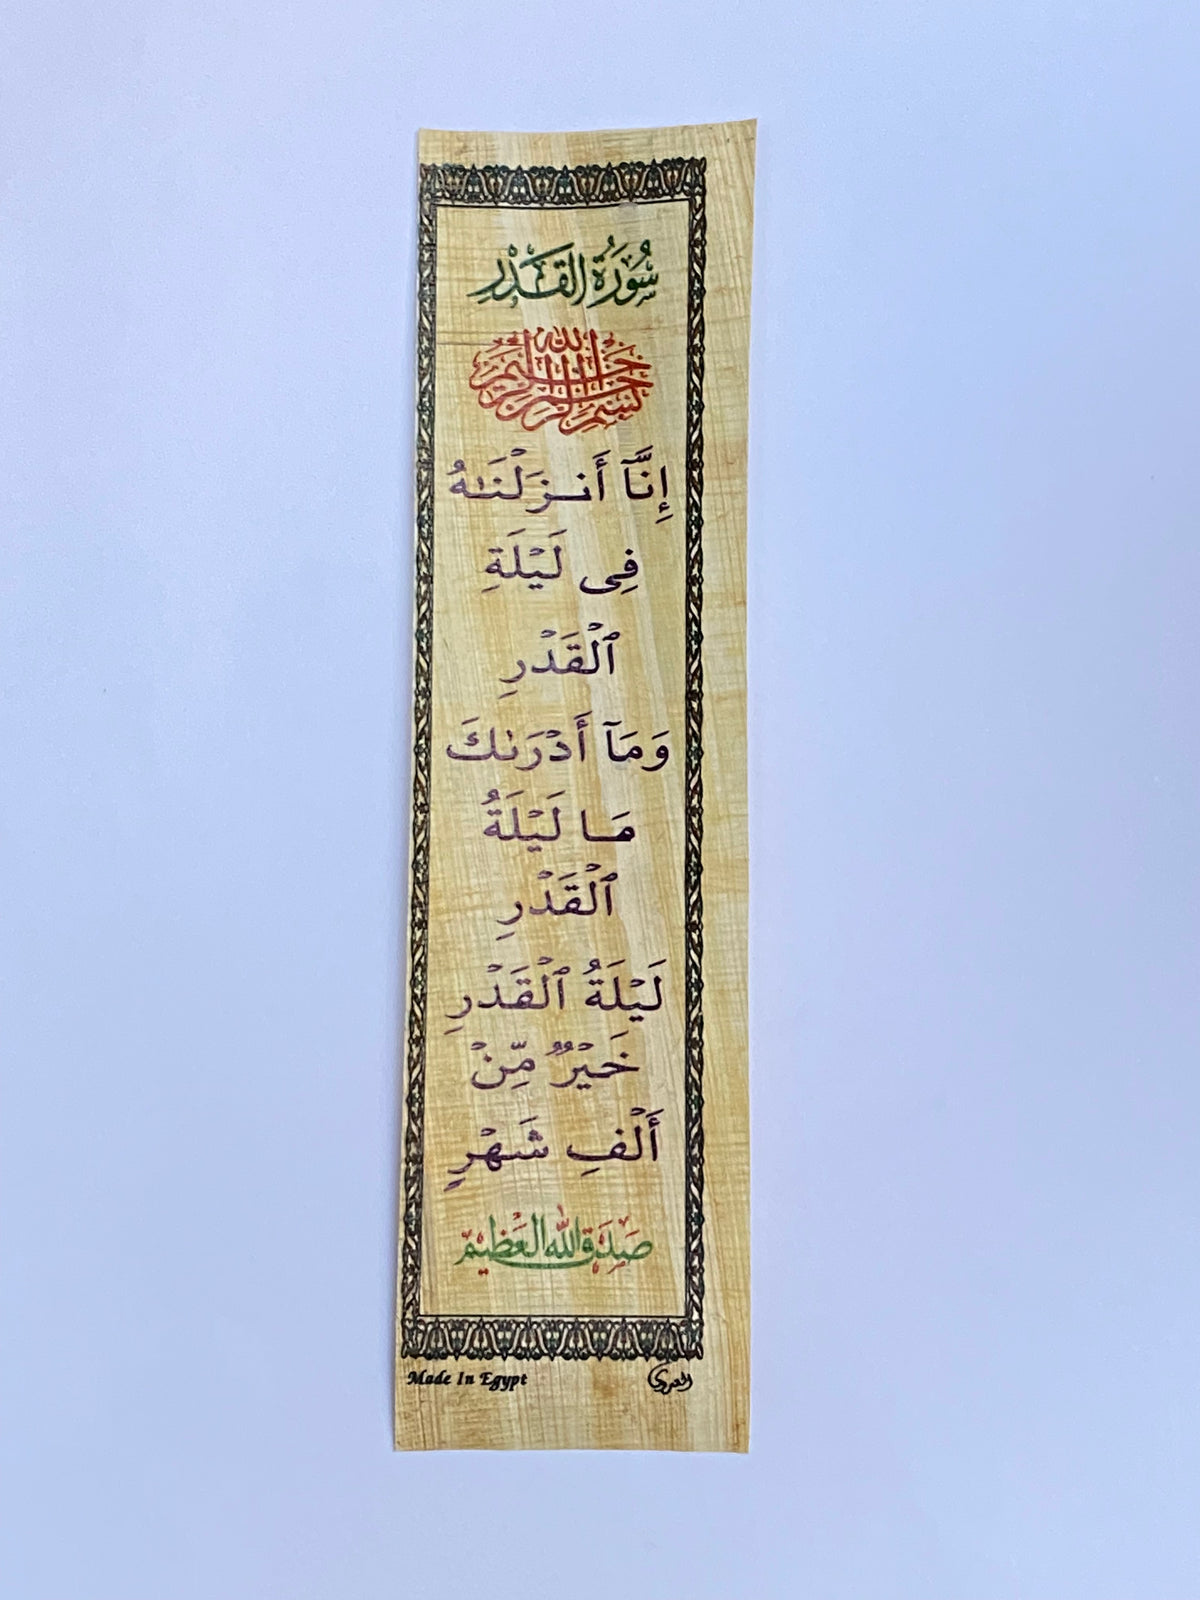 سُورَةُ القَدْرِ
بسم الله الرحمن الرحيم
إِنَّآ أَنزَلْنَـٰهُ
فِى لَيْلَةِ
ٱلْقَدْرِ
وَمَآ أَدْرَىٰكَ
مَا لَيْلَةُ
ٱلْقَدْرِ
لَيْلَةُ ٱلْقَدْرِ
خَيْرٌ مِّنْ
أَلْفِ شَهْرٍ
صَدَقَ اللّٰه العَظِيم
Made In Egypt